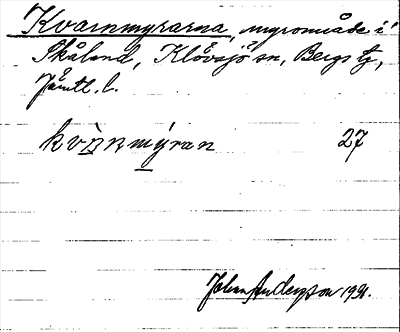 Kvarnmyrarna, myrområde i
Skåland, Klövsjö sn, Bergs tg,
Jämtl. l.
kvɑ̀nmýran 27
John Anderson 1931.